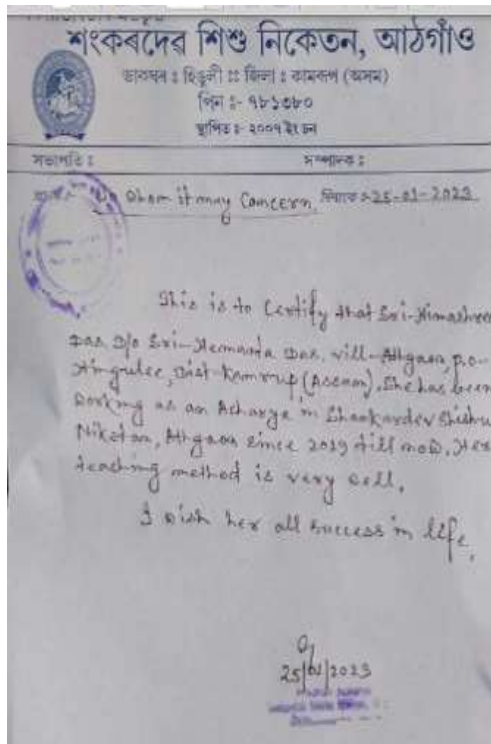 শংকৰদেৱ শিশু নিকেতন, আঠগাঁও
ডাকঘৰ ঃ হিঙুলী ঃঃ জিলা ঃ কামৰূপ (অসম)
পিন ঃ- ৭৮১৩৮০
স্থাপিত ঃ- ২০০৭ ইং চন
সভাপতি ঃ সম্পাদক ঃ
Whom it may Concern, দিনাংক ঃ-25-01-2023
This is to Certify that Sri-Himashree
Das D/o Sri-Hemanta Das, vill-Athgaon, P.O-
Hingulee, Dist-Kamrup (Assam), She has been
working as an Acharya in Shankardev Shishu
Niketan, Athgaon since 2019 till now, Her
teaching method is very well,
I wish her all success in life,
25/01/2023